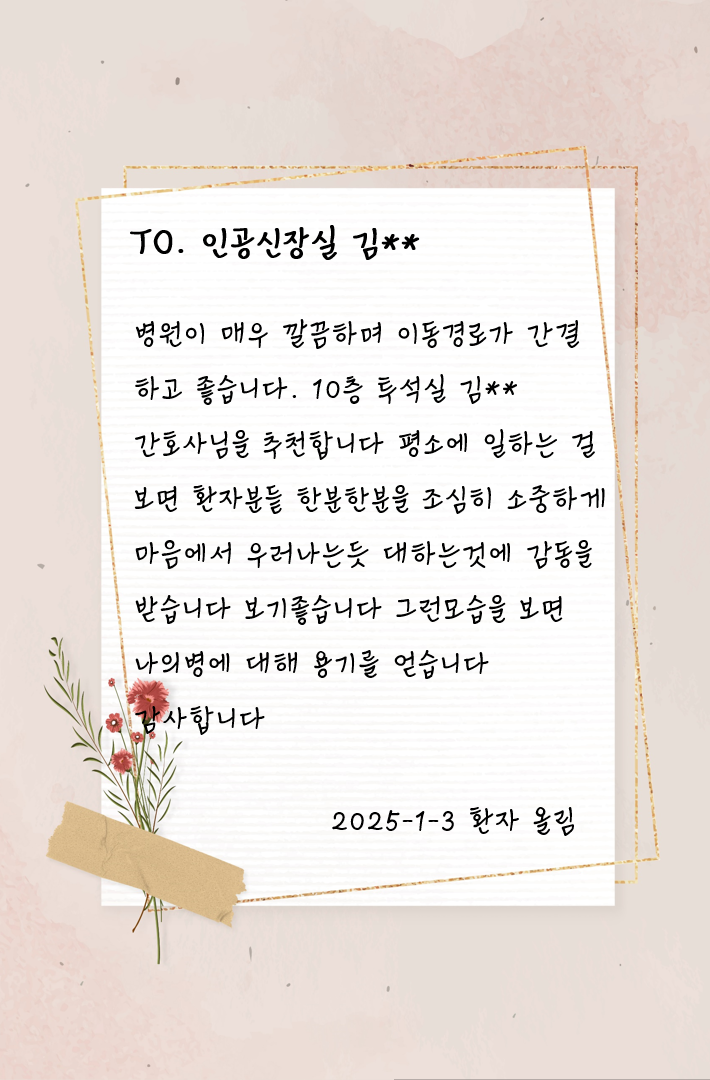 TO. 인공신장실 김**
병원이 매우 깔끔하며 이동경로가 간결
하고 좋습니다. 10층 투석실 김**
간호사님을 추천합니다 평소에 일하는 걸
보면 환자분들 한분한분을 조심히 소중하게
마음에서 우러나는듯 대하는것에 감동을
받습니다 보기좋습니다 그런모습을 보면
나의병에 대해 용기를 얻습니다
감사합니다
2025-1-3 환자 올림